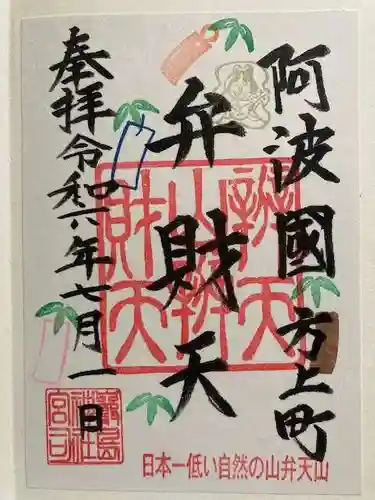 阿波國方上町
弁財天
奉拝令和六年七月一日
日本一低い自然の山弁天山